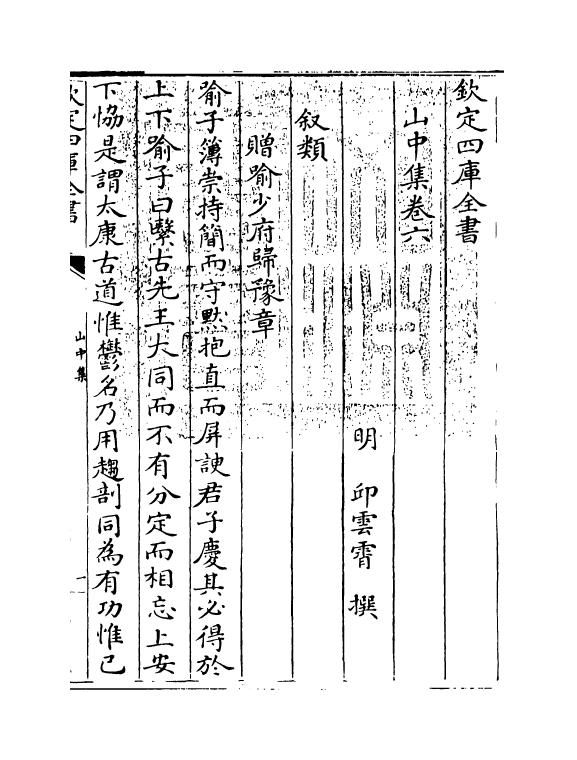 欽定四庫全書
山中集卷六
明 邱雲霄 撰
叙類
贈喻少府歸豫章
喻子簿崇持簡而守默抱直而屏諛君子慶其必得於
上下喻子曰繄古先王大同而不有分定而相忘上安
下恊是謂太康古道惟鬱名乃用趨剖同為有功惟已
欽定四庫全書
山中集
一